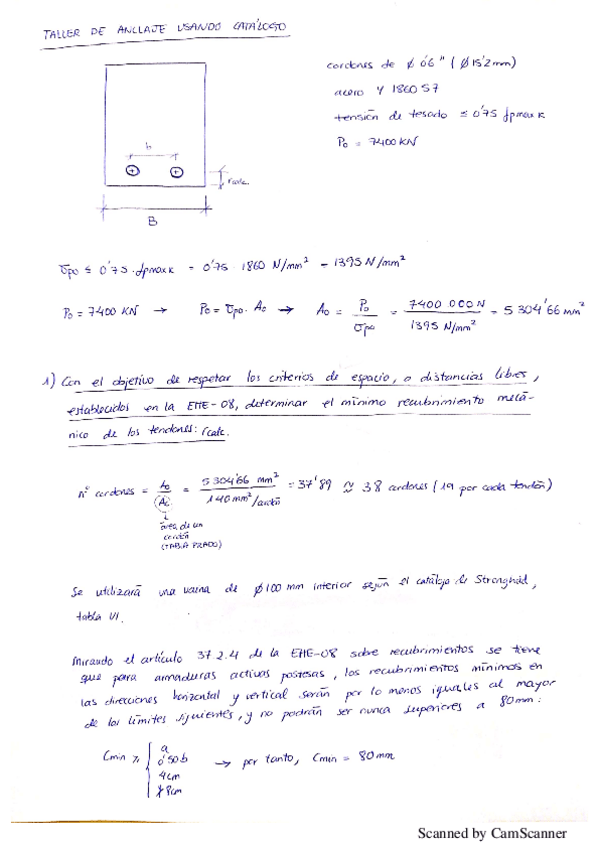 TALLER DE ANCLAJE USANDO CATÁLOGO
cordones de ϕ 0'6" (ϕ15'2mm)
acero Y 1860 S7
tensión de tesado ≤ 0'75 fpmax k
P₀ = 7400 KN
b
rcalc.
B
σpo ≤ 0'75 · fpmax k = 0'75 · 1860 N/mm² = 1395 N/mm²
P₀ = 7400 KN → P₀ = σpo · A₀ → A₀ = P₀/σpo = 7400 000 N / 1395 N/mm² = 5 304'66 mm²
1) Con el objetivo de respetar los criterios de espacio, o distancias libres,
establecidos en la EHE-08, determinar el mínimo recubrimiento mecá-
nico de los tendones: rcalc.
nº cordones = A₀/Ac = 5 304'66 mm² / 140 mm²/cordón = 37'89 ≈ 38 cordones (19 por cada tendón)
área de un
cordón
(TABLA PRADO)
Se utilizará una vaina de ϕ100 mm interior según el catálogo de Stronghold,
tabla VI.
Mirando el artículo 37.2.4 de la EHE-08 sobre recubrimientos se tiene
que para armaduras activas postesas, los recubrimientos mínimos en
las direcciones horizontal y vertical serán por lo menos iguales al mayor
de los límites siguientes, y no podrán ser nunca superiores a 80mm:
Cmin ≥ { a
0'50 b → por tanto, Cmin = 80mm
4cm
≯ 8cm
Scanned by CamScanner